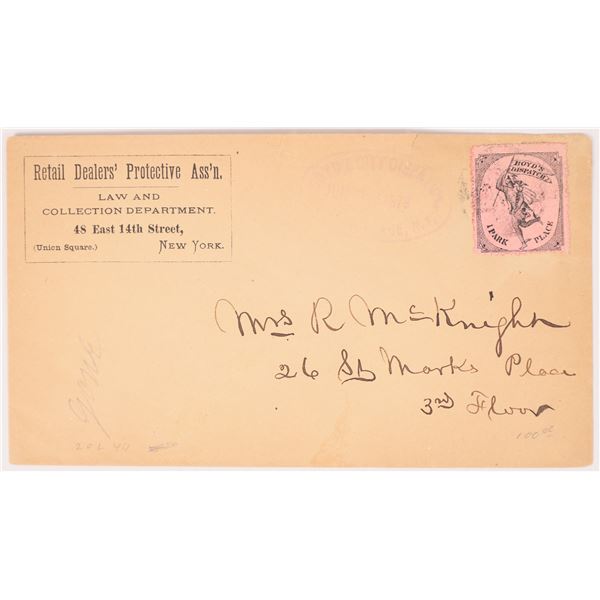 Retail Dealers' Protective Ass'n.
LAW AND
COLLECTION DEPARTMENT.
48 East 14th Street,
(Union Square.) NEW YORK.
BOYD'S
DISPATCH
1 PARK PLACE
Mrs R McKnight
26 St Marks Place
3rd Floor
gone
20L44
100.00